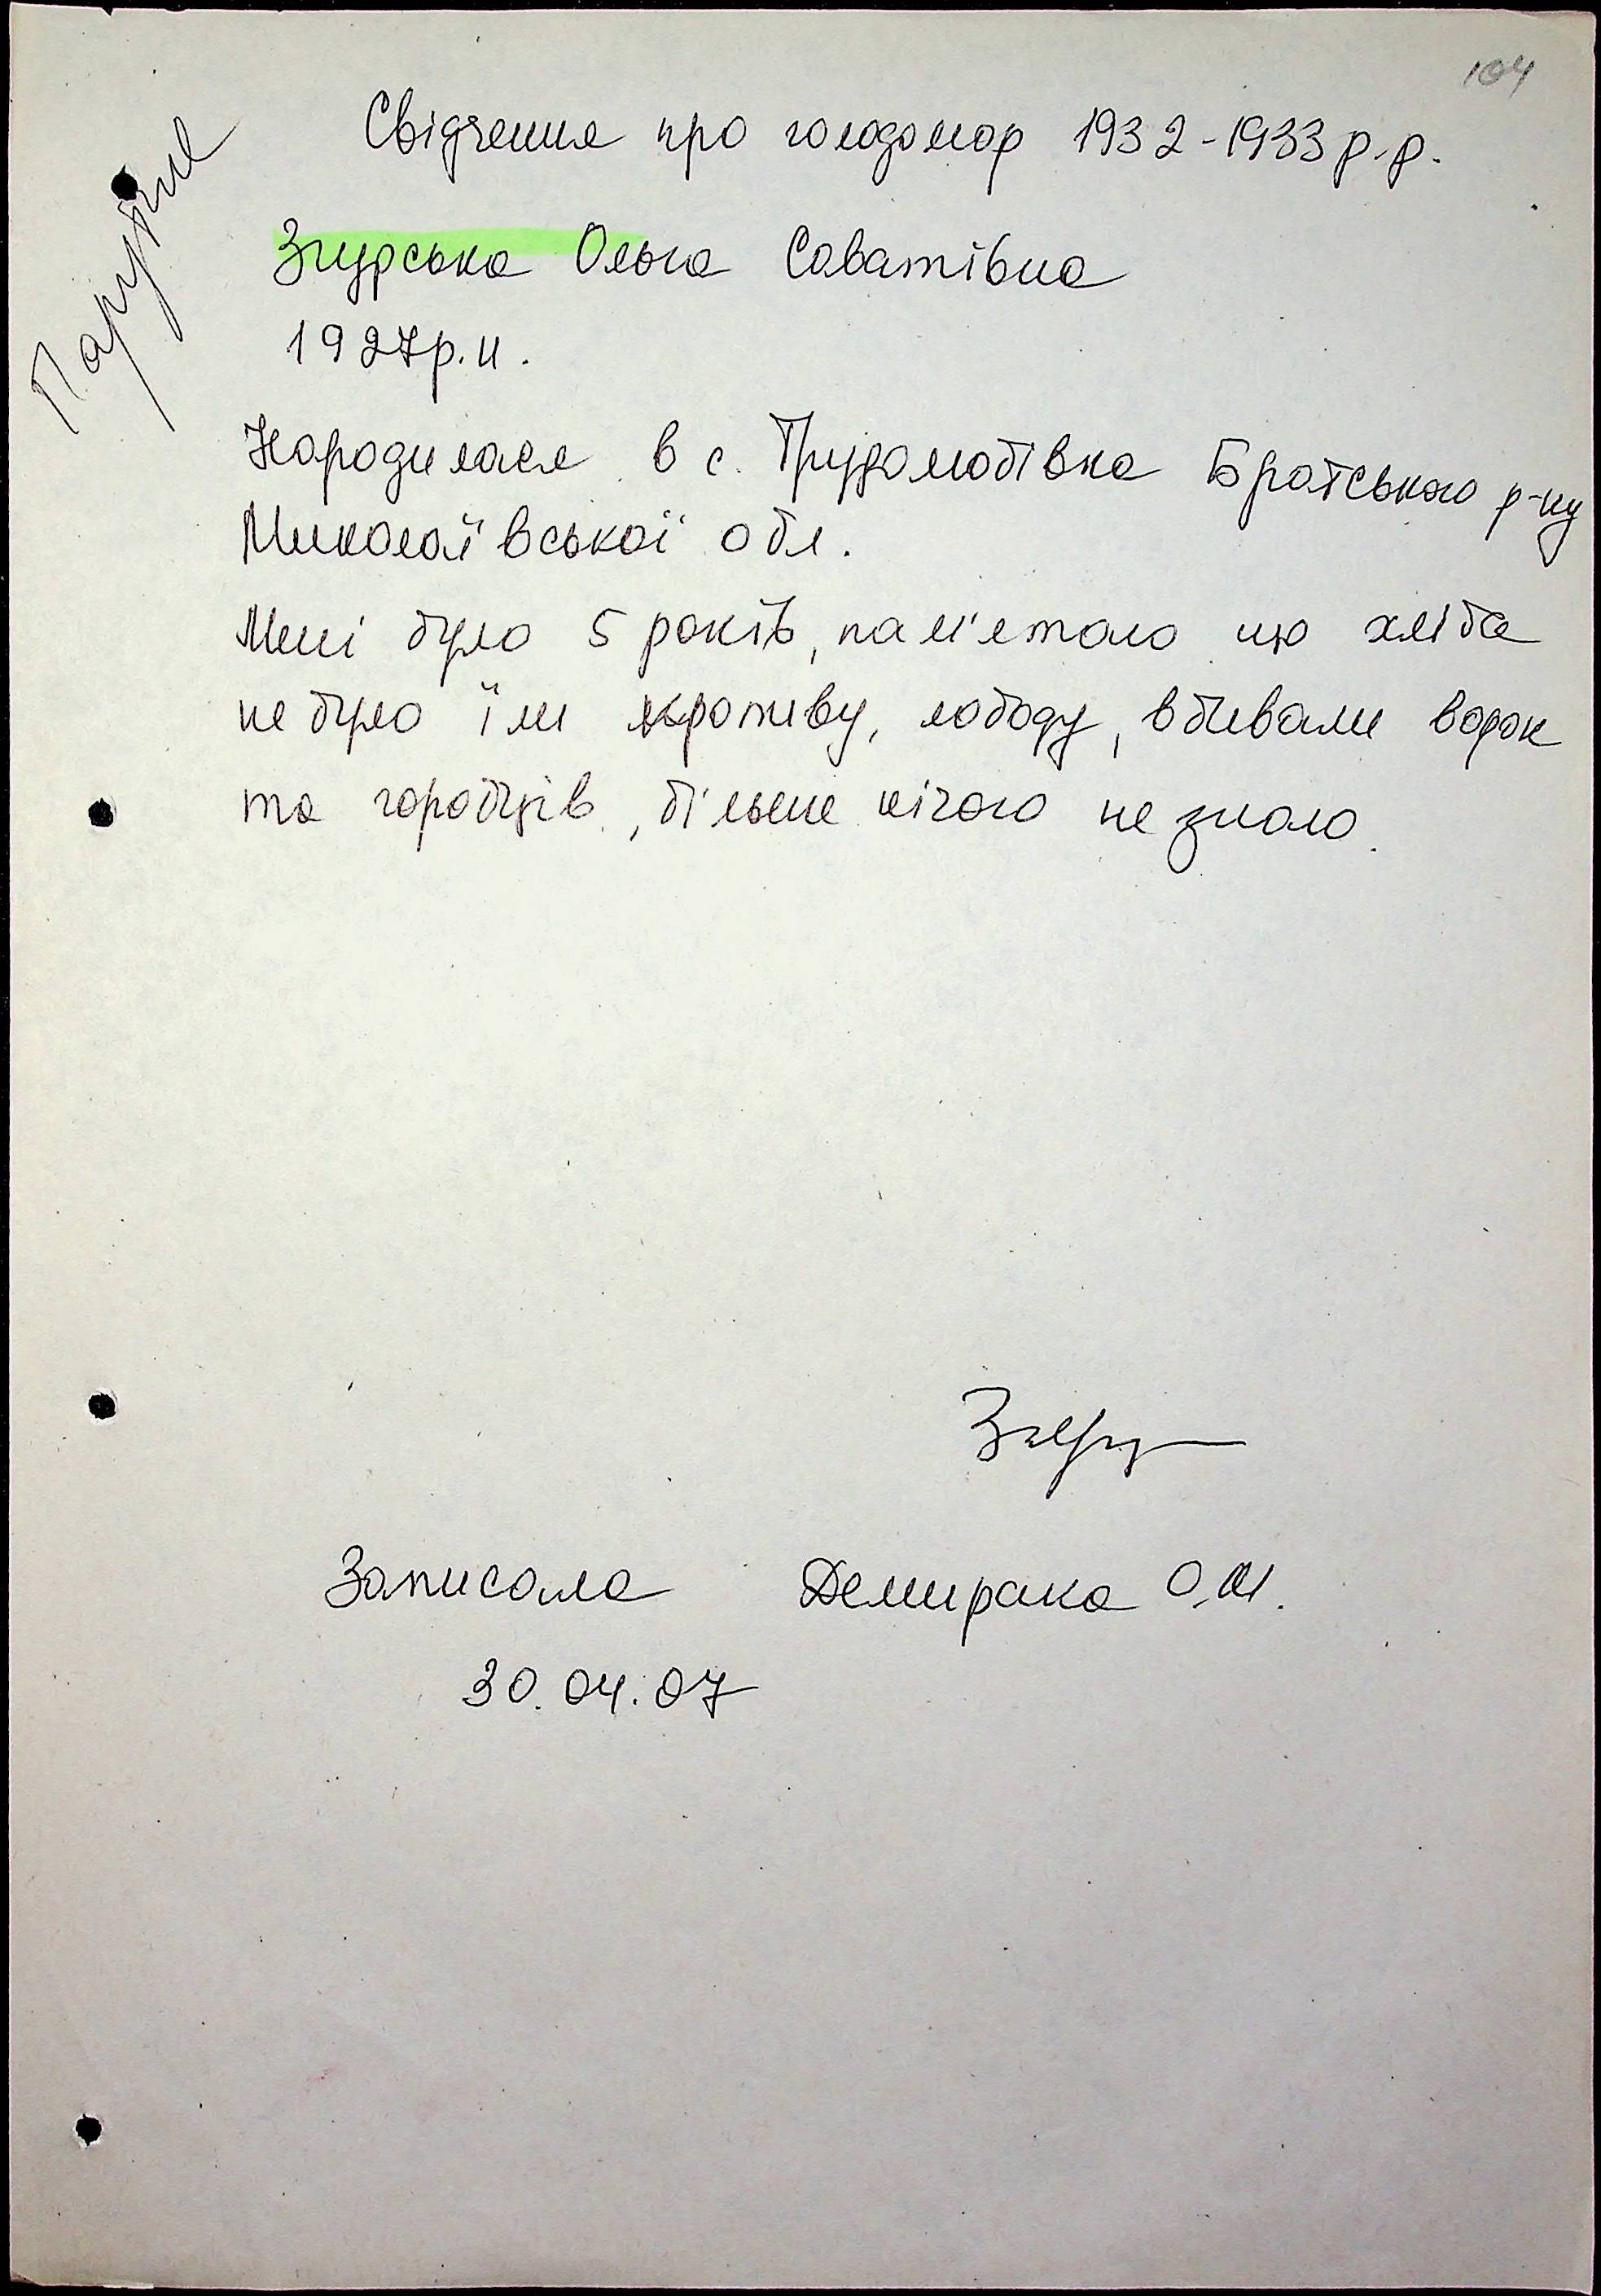 104
Парутине
Свідчення про голодомор 1932-1933 р.р.
Згурська Ольга Саватівна
1927р.н.
Народилася в с. Трудолюбівка Братського р-ну
Миколаївської обл.
Мені було 5 років, пам'ятаю що хліба
не було їли кропиву, лободу, вбивали ворон
та горобців, більше нічого не знаю.
Записала Демирака О.М.
30.04.07